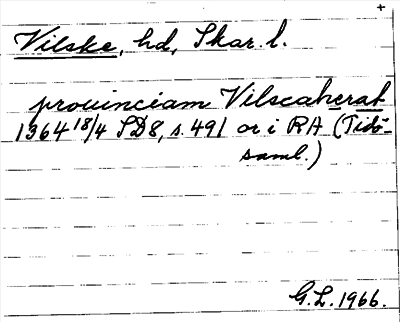 +
Vilske, hd, Skar. l.
prouinciam Vilscaherat
1364 18/4 SD8, s. 491 or i RA (Tidö-
saml.)
G.L. 1966.